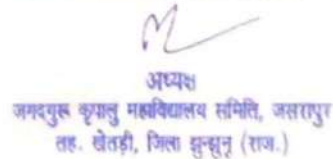 अध्यक्ष
जगद्गुरू कृपालु महाविद्यालय समिति, जसरापुर
तह. खेतड़ी, जिला झुन्झुनू (राज.)